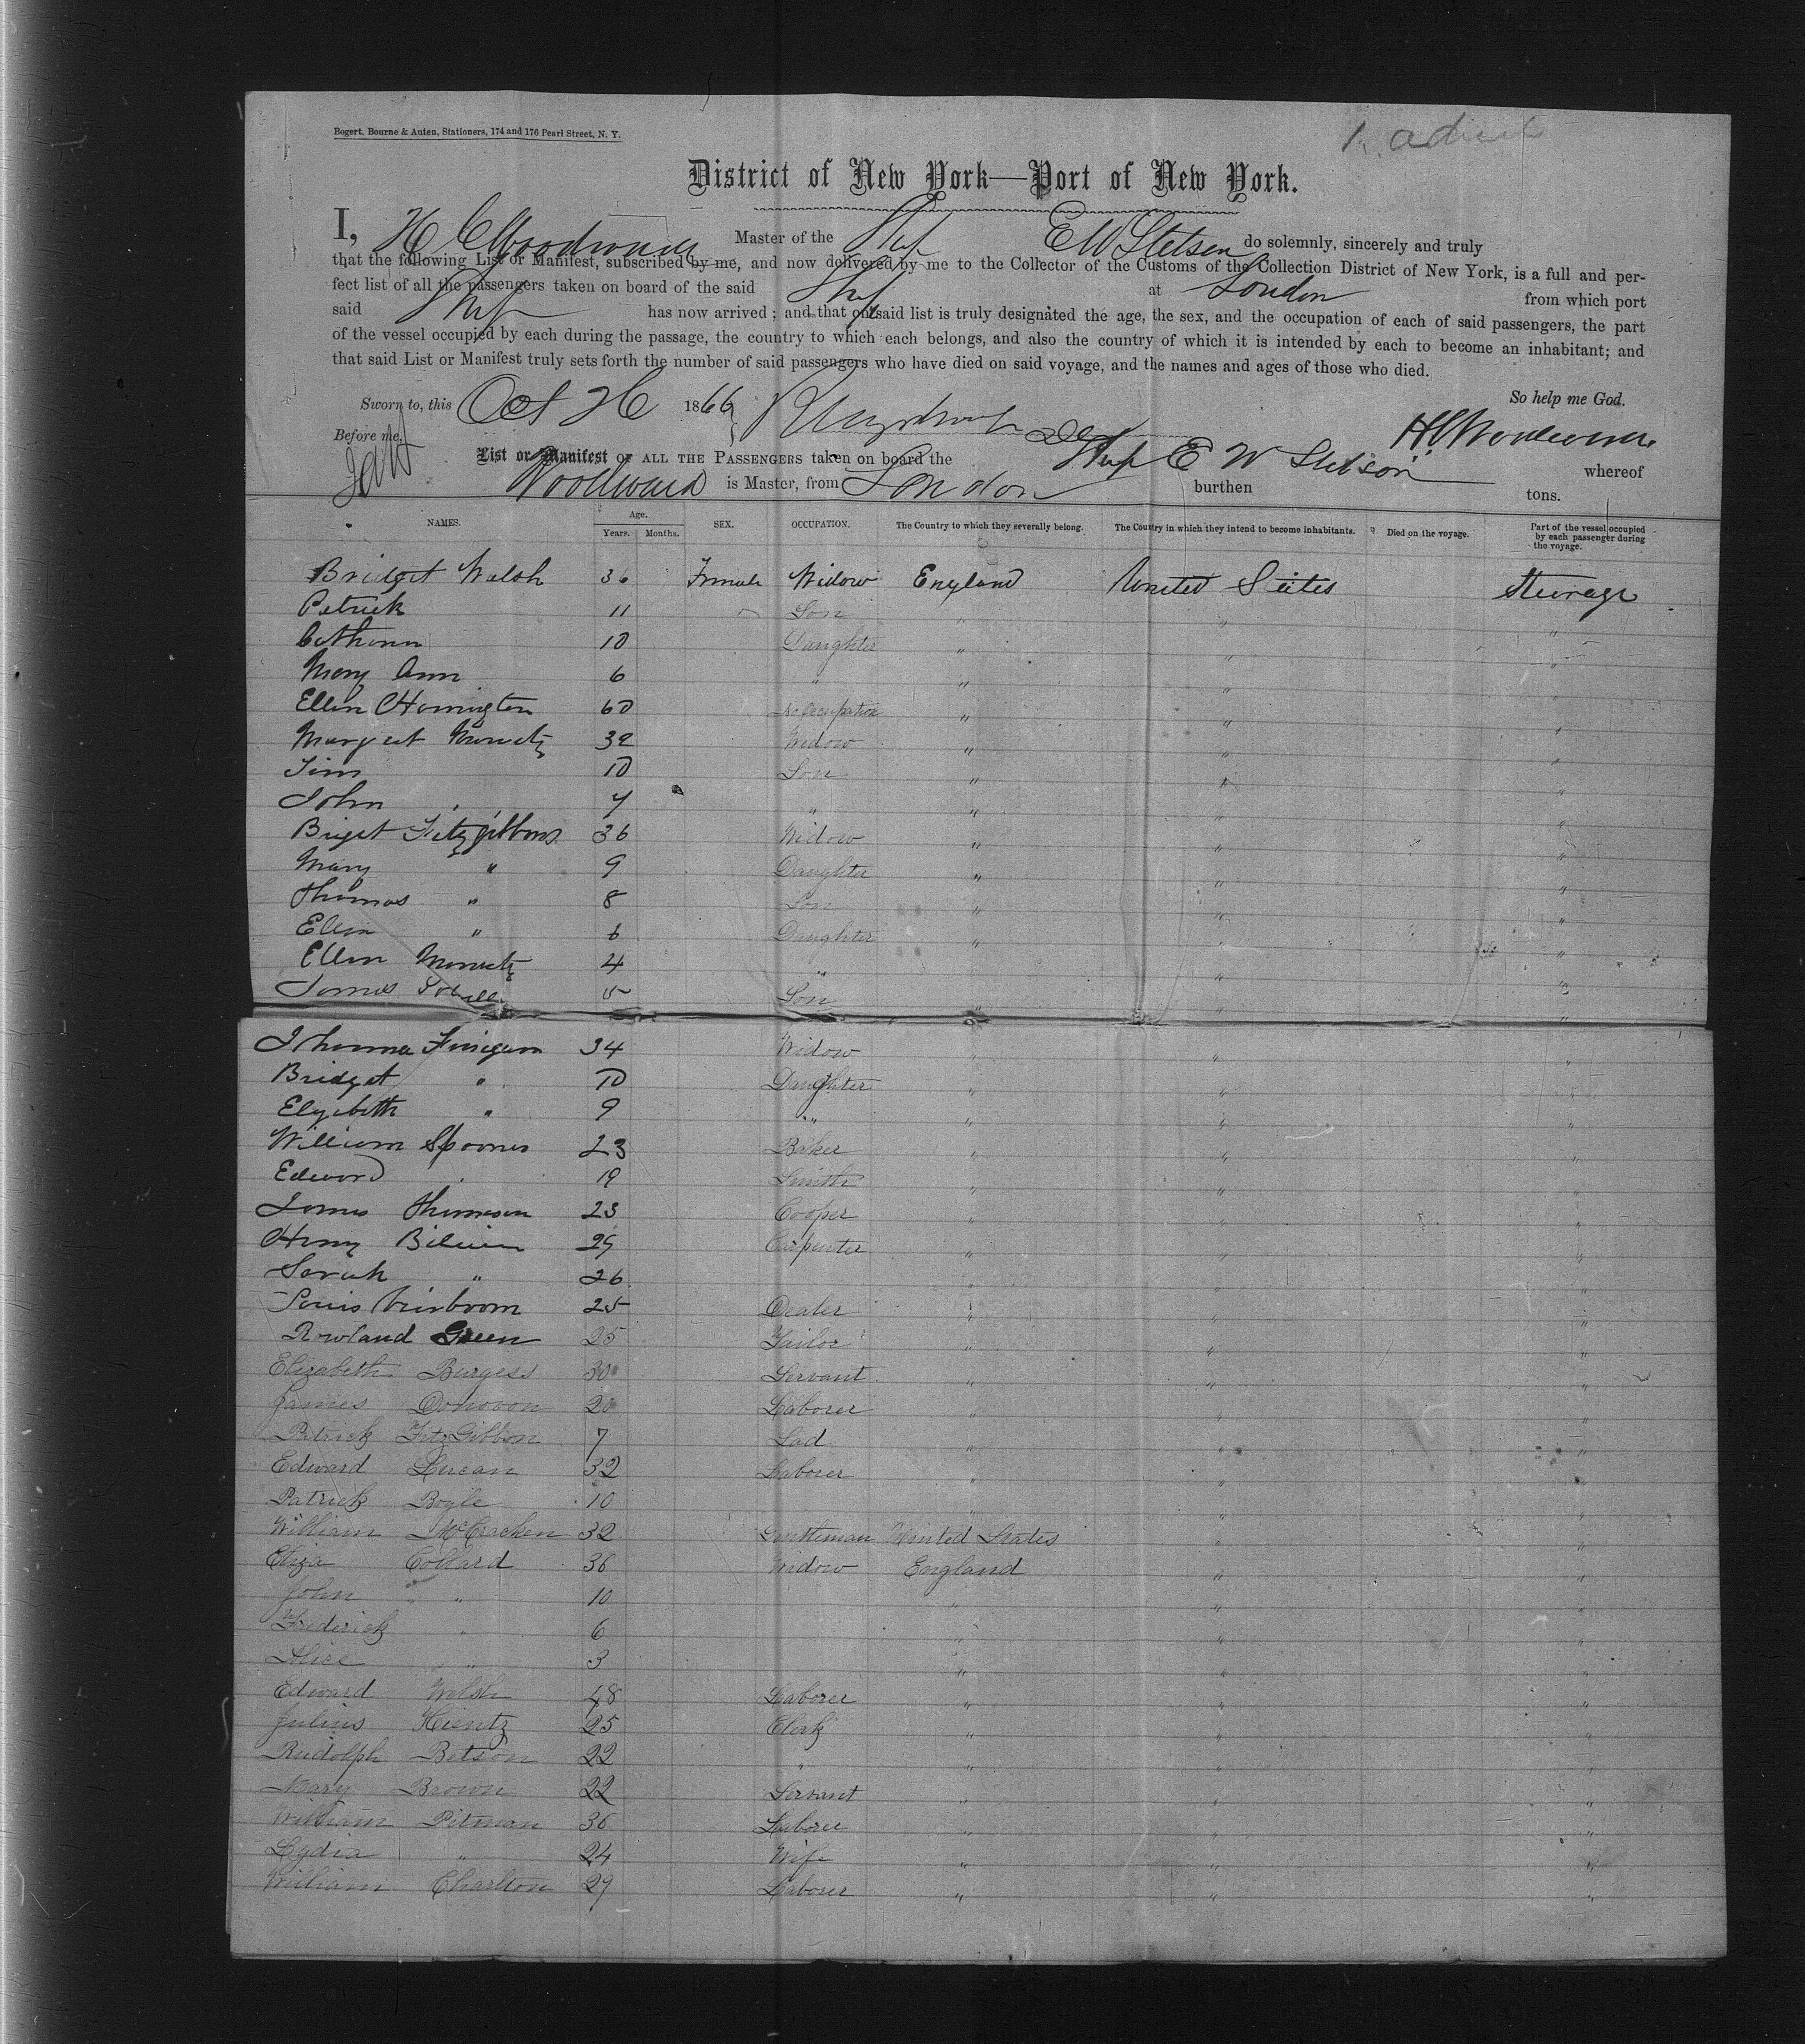 Bogert, Bourne & Auten, Stationers, 174 and 176 Pearl Street, N. Y.
District of New York—Port of New York.
I, H C Woodward Master of the Ship E W Stetson do solemnly, sincerely and truly
that the following List or Manifest, subscribed by me, and now delivered by me to the Collector of the Customs of the Collection District of New York, is a full and per-
fect list of all the passengers taken on board of the said Ship at London from which port
said Ship has now arrived; and that on said list is truly designated the age, the sex, and the occupation of each of said passengers, the part
of the vessel occupied by each during the passage, the country to which each belongs, and also the country of which it is intended by each to become an inhabitant; and
that said List or Manifest truly sets forth the number of said passengers who have died on said voyage, and the names and ages of those who died.
Sworn to, this Oct 26 1866 So help me God.
Before me,
List or Manifest OF ALL THE PASSENGERS taken on board the Ship E W Stetson whereof
Woodward is Master, from London burthen tons.
NAMES. Age. Years. Months. SEX. OCCUPATION. The Country to which they severally belong. The Country in which they intend to become inhabitants. Died on the voyage. Part of the vessel occupied by each passenger during the voyage.
Bridget Walsh 36 Female Widow England United States Steerage
Patrick 11 Son " " "
Catherin 10 Daughter " " "
Mary Ann 6 " " " "
Ellen 60 No Occupation " " "
Margaret 32 Widow " " "
Tim 10 Son " " "
John 7 " " " "
Briget Fitzgibbons 36 Widow " " "
Mary " 9 Daughter " " "
Thomas " 8 Son " " "
Ellen " 6 Daughter " " "
Ellen 4 " " "
James 5 Son " " "
Finigan 34 Widow " " "
Bridget " 10 Daughter " " "
Elizabeth " 9 " " " "
William Spooner 23 Baker " " "
Edward " 19 Smith " " "
James Thomson 23 Cooper " " "
Henry 29 Carpenter " " "
Sarah " 26 " " "
Louis 25 Dealer " " "
Rowland Green 25 Tailor " " "
Elizabeth Burgess 30 Servant " " "
James Donovon 20 Laborer " " "
Patrick FitzGibbon 7 Lad " " "
Edward Lucan 32 Laborer " " "
Patrick Boyle 10 " " "
William McCracken 32 Gentleman United States " "
Eliza Collard 36 Widow England " "
John " " 10 " " "
Frederick " 6 " " "
Alice " 3 " " "
Edward Welsh 48 Laborer " " "
Julius Hientz 25 Clerk " " "
Rudolph Betson 22 " " " "
Mary Brown 22 Servant " " "
William Pitman 36 Laborer " " "
Lydia " 24 Wife " " "
William Charlton 29 Laborer " " "